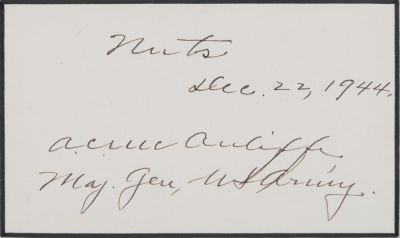 Nuts
Dec. 22, 1944.
A.C. McAuliffe
Maj. Gen, US Army.